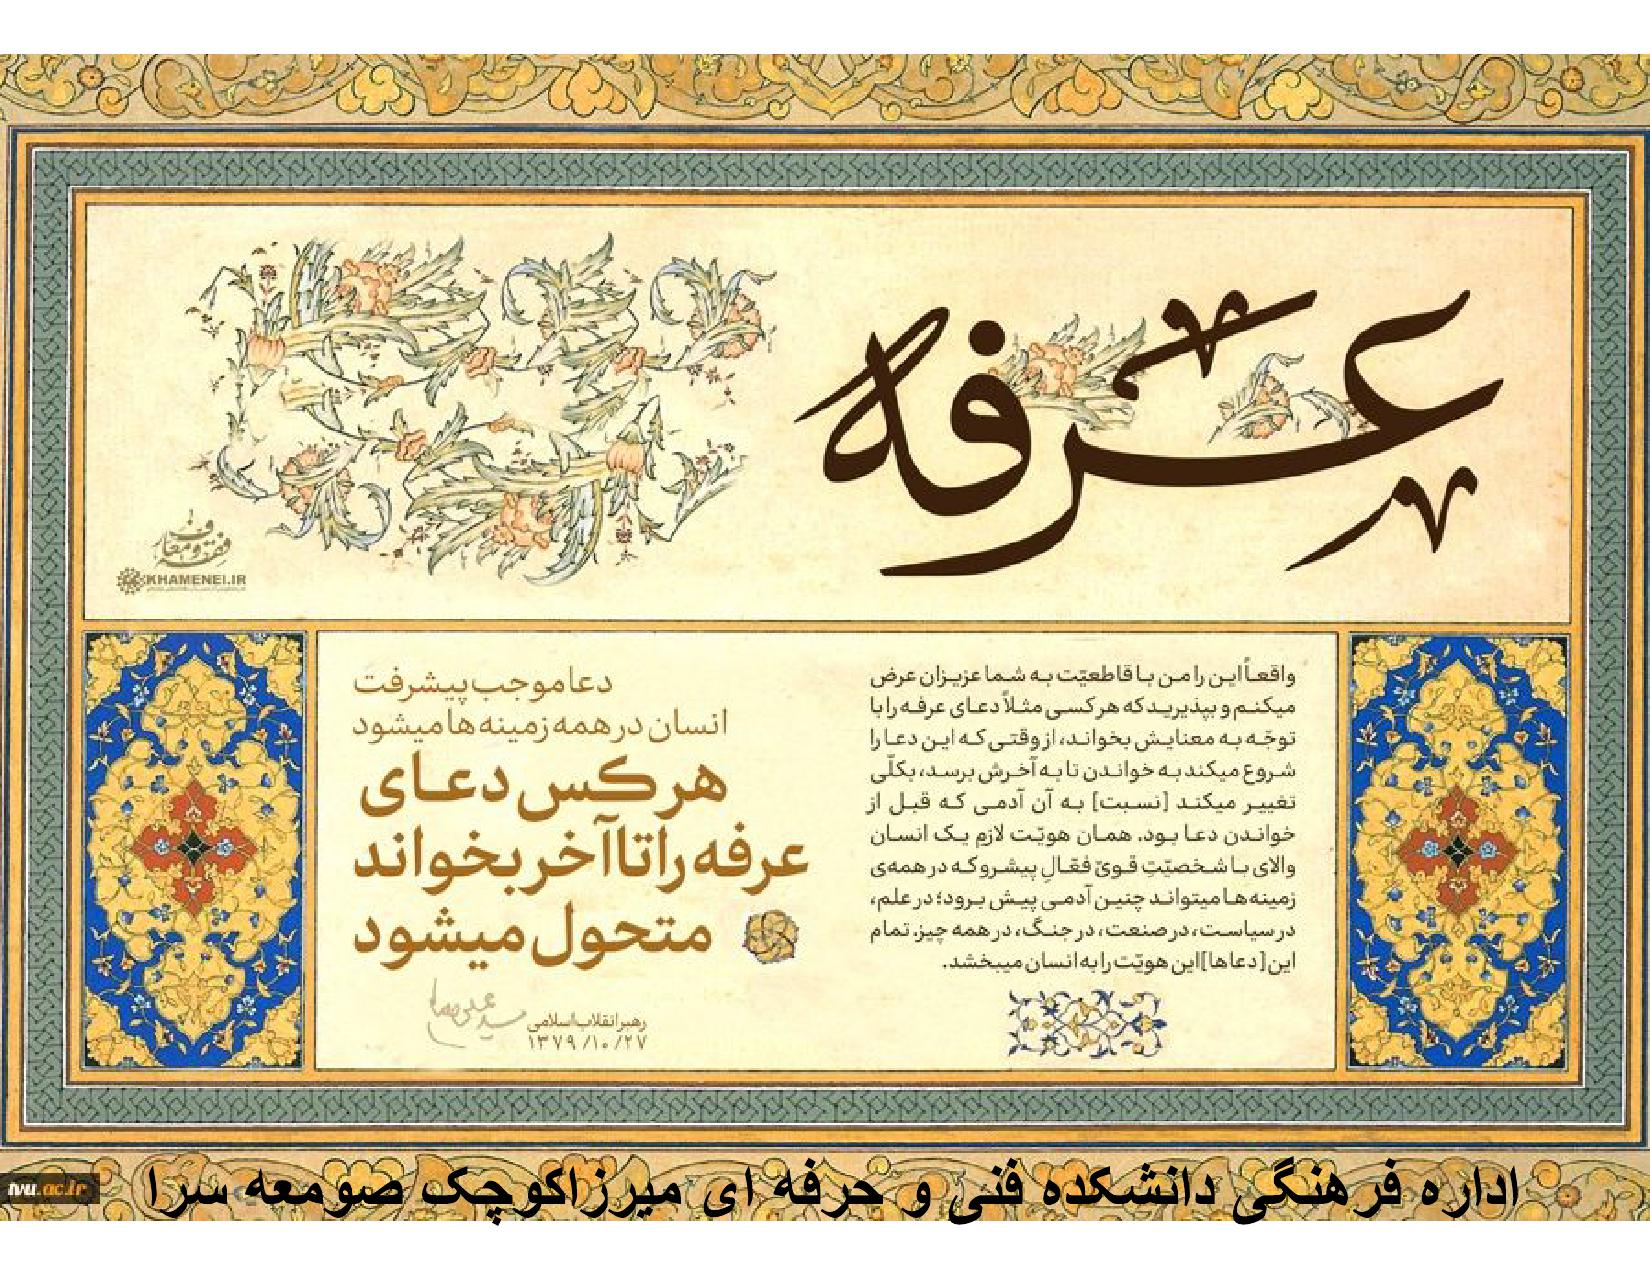 عرفه
فقه و معارف
KHAMENEI.IR
واقعاً این را من با قاطعیّت به شما عزیزان عرض
میکنم و بپذیرید که هر کسی مثلاً دعای عرفه را با
توجّه به معنایش بخواند، از وقتی که این دعا را
شروع میکند به خواندن تا به آخرش برسد، بکلّی
تغییر میکند [نسبت] به آن آدمی که قبل از
خواندن دعا بود. همان هویّت لازم یک انسان
والای با شخصیّتِ قویّ فعّالِ پیشرو که در همه‌ی
زمینه‌ها میتواند چنین آدمی پیش برود؛ در علم،
در سیاست، در صنعت، در جنگ، در همه چیز. تمام
این [دعاها] این هویّت را به انسان میبخشد.
دعا موجب پیشرفت
انسان در همه زمینه‌ها میشود
هر کس دعای
عرفه را تا آخر بخواند
متحول میشود
رهبر انقلاب اسلامی
۱۳۷۹/۱۰/۲۷
اداره فرهنگی دانشکده فنی و حرفه ای میرزاکوچک صومعه سرا
tvu.ac.ir